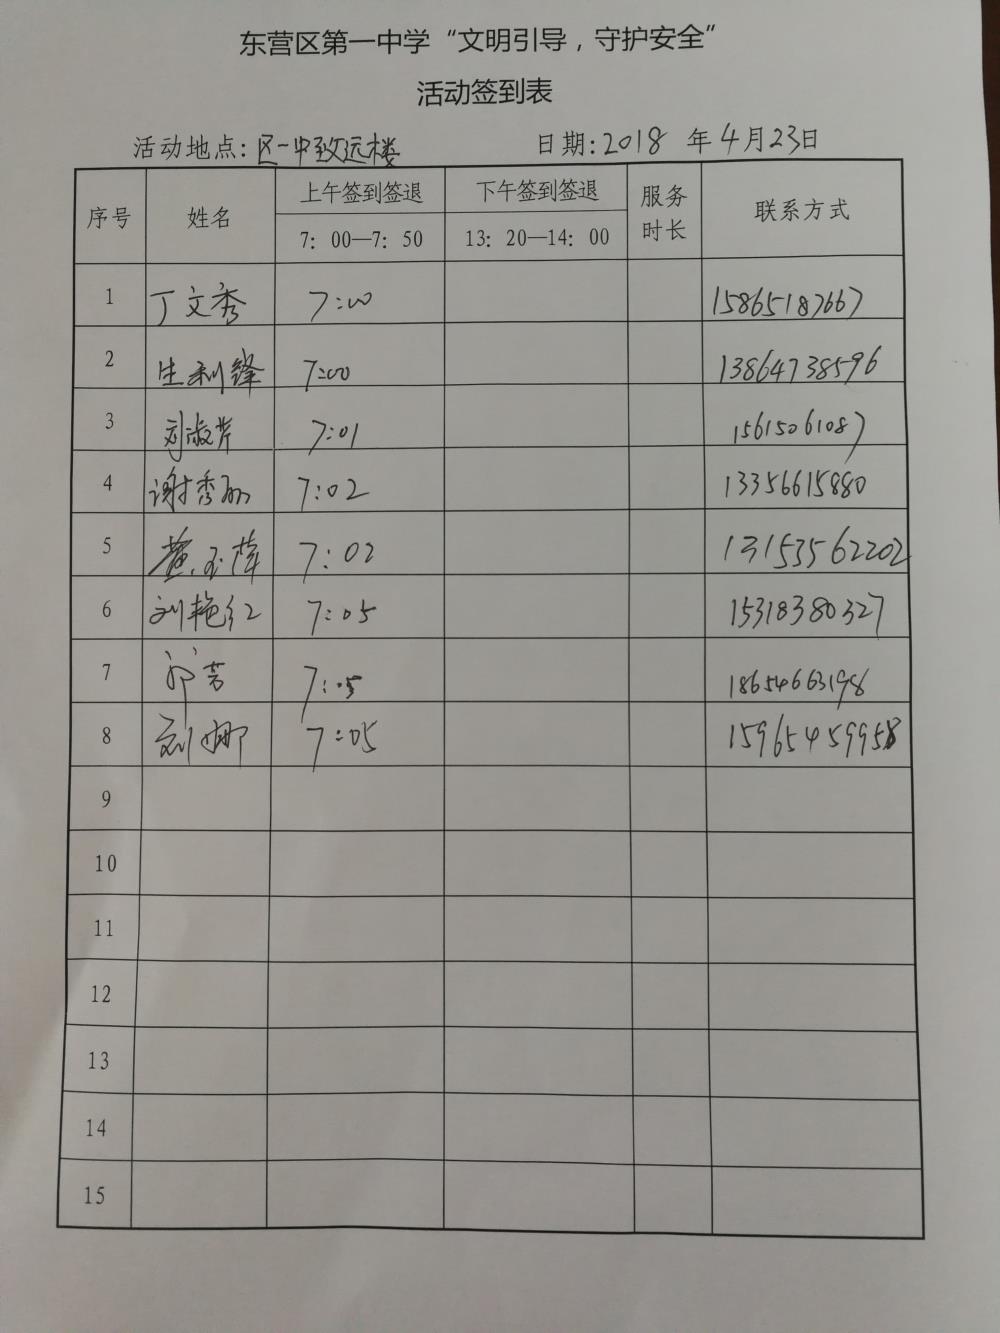 东营区第一中学“文明引导，守护安全”
活动签到表
活动地点：区一中致远楼 日期：2018 年 4月23日
序号 姓名 上午签到签退 下午签到签退 服务时长 联系方式
7：00—7：50 13：20—14：00
1 丁文秀 7:00 15865187667
2 生利锋 7:00 13864738596
3 刘淑芹 7:01 15615061087
4 谢秀丽 7:02 13356615880
5 黄玉萍 7:02 13153562202
6 刘艳红 7:05 15318380327
7 7:05 18654663198
8 刘娜 7:05 15965459958
9
10
11
12
13
14
15